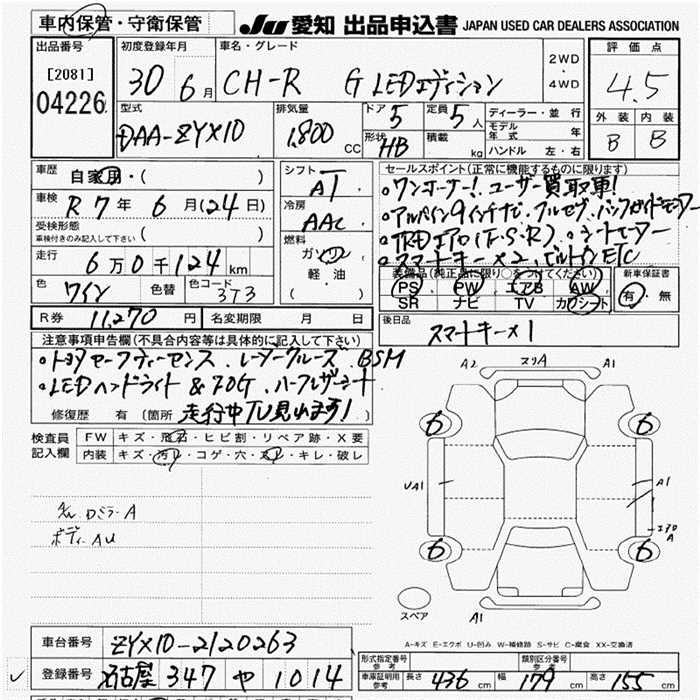 車内保管・守衛保管
JU 愛知 出品申込書 JAPAN USED CAR DEALERS ASSOCIATION
出品番号 初度登録年月 車名・グレード 評価点
[2081] 30 6月 CH-R G LEDエディション 2WD・4WD 4.5
04226
型式 排気量 ドア 定員 ディーラー・並行 外装 内装
DAA-ZYX10 1,800 CC 5 5人 モデル年式 年 B B
形状 HB 積載 kg ハンドル 左・右
車歴 自家用・( ) シフト AT セールスポイント(正常に機能するものに限ります)
。ワンオーナー!、ユーザー買取車!
車検 R7年 6月(24日) 冷房 AAC 。アルパイン9インチナビ、フルセグ、バックガイドモニター
受検形態 車検付きのみ記入して下さい ( ) 。TRDエアロ(F・S・R)。シートヒーター
燃料 ガソリン 軽油 ( ) 。スマートキー×2、ビルトインETC
走行 6万0千124km 装備品(純正品に限り○をつけてください) 新車保証書
PS PW エアB AW 有・無
色 ワイン 色替 色コード 3T3 SR ナビ TV カワシート
R券 11,270円 名変期限 月 日 後日品 スマートキー×1
注意事項申告欄(不具合内容等は具体的に記入して下さい)
・トヨタセーフティーセンス、レーダークルーズ、BSM
・LEDヘッドライト & FOG、ハーフレザーシート
修復歴 有 (箇所 走行中TV見れます!
検査員記入欄 FW キズ・飛石・ヒビ割・リペア跡・X要
内装 キズ・汚レ・コゲ・穴・スレ・キレ・破レ
DミラーA
ボディーAU
A2 スリA A1
6 6
UA1 A1
エアロA
6 6
スペア A1
A-キズ E-エクボ U-凹み W-補修跡 S-サビ C-腐食 XX-交換済
車台番号 ZYX10-2120263
登録番号 名古屋 347 や 1014
形式指定番号 参考 類別区分番号 参考
車庫証明用 参考 長さ 436 cm 幅 179 cm 高さ 155 cm